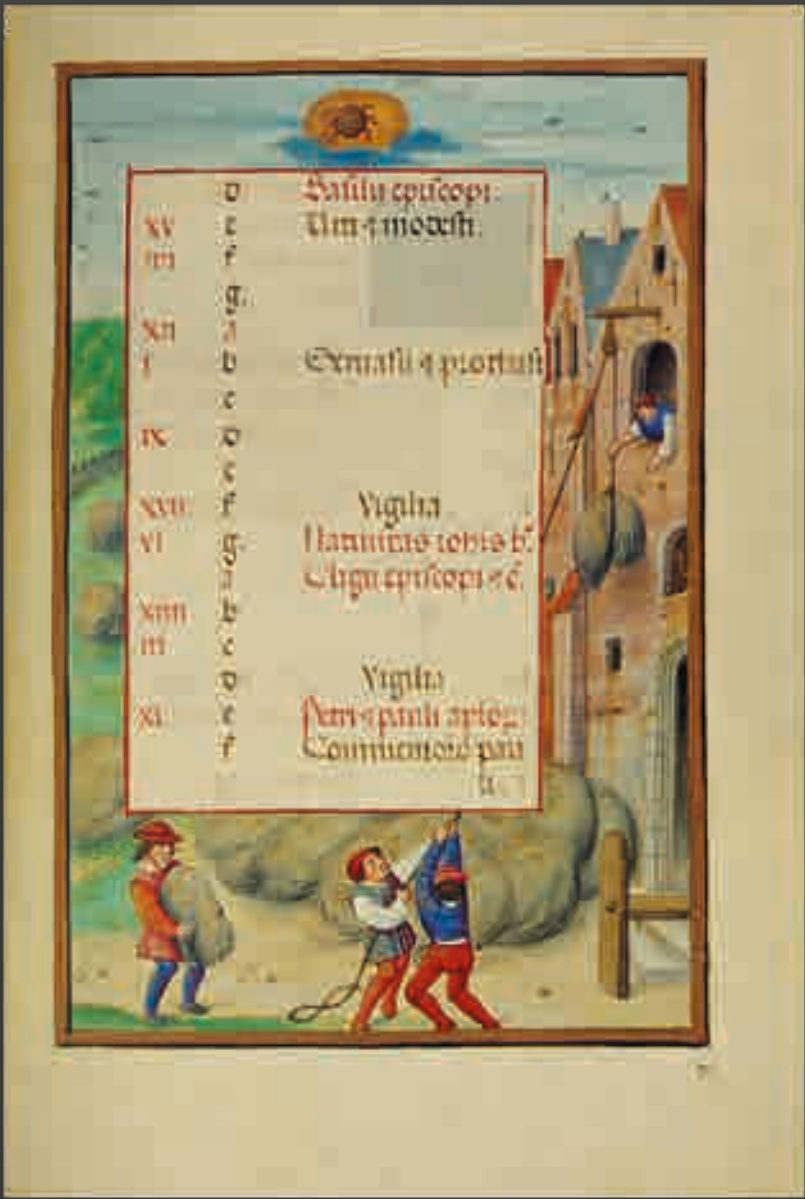 d Basilii episcopi.
XV e Viti ⁊ modesti.
IIII f
g.
XII a
I b Gervasii ⁊ prothasii
c
IX d
e
XVII f Vigilia
VI g. Nativitas iohis b.
a Eligii episcopi ⁊ c.
XIIII b
III c
d Vigilia
XI e Petri ⁊ pauli aplor.
f Commemoracio pau
li